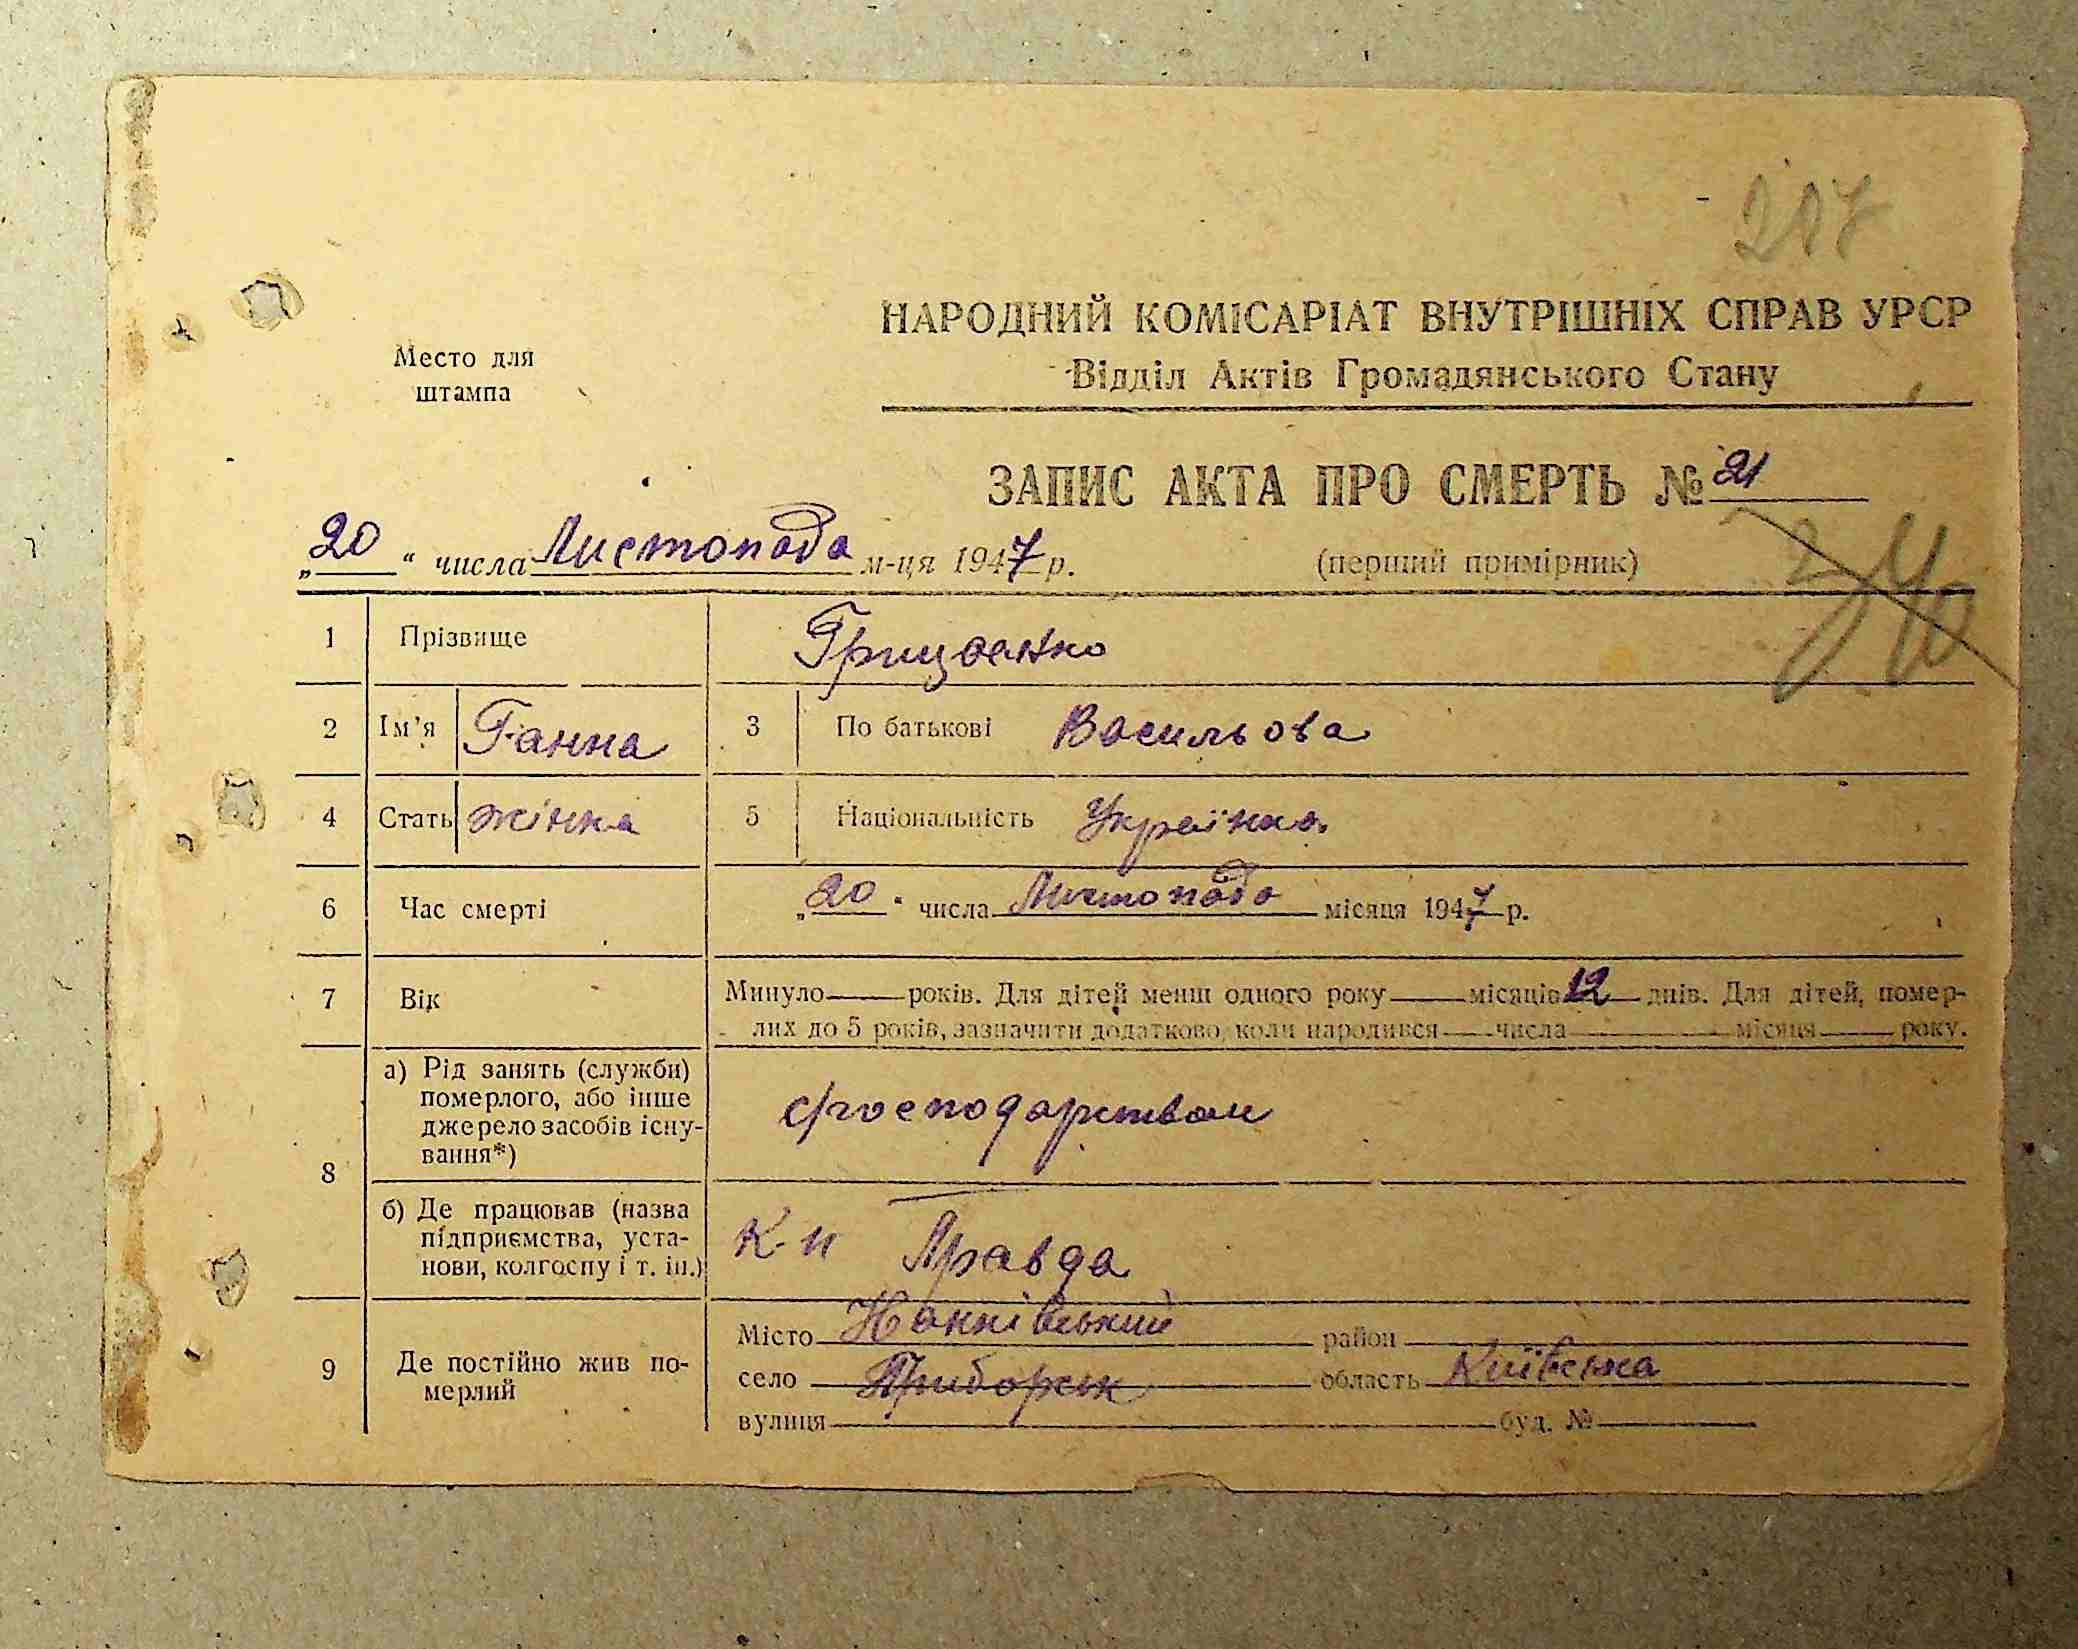 217
НАРОДНИЙ КОМІСАРІАТ ВНУТРІШНІХ СПРАВ УРСР
Место для штампа
Відділ Актів Громадянського Стану
ЗАПИС АКТА ПРО СМЕРТЬ № 21
„20“ числа Листопада м-ця 1947 р. (перший примірник)
1 Прізвище Грицженко
2 Ім’я Ганна 3 По батькові Васильова
4 Стать жінка 5 Національність Українка
6 Час смерті „20“ числа Листопада місяця 1947 р.
7 Вік Минуло — років. Для дітей менш одного року — місяців 12 днів. Для дітей, помер-
лих до 5 років, зазначити додатково, коли народився — числа — місяця — року.
8 а) Рід занять (служби)
померлого, або інше
джерело засобів існу-
вання*)
с/господарством
б) Де працював (назва
підприємства, уста-
нови, колгоспу і т. ін.)
К-п Правда
9 Де постійно жив по-
мерлий
Місто район
село Приборськ область Київська
вулиця буд. №